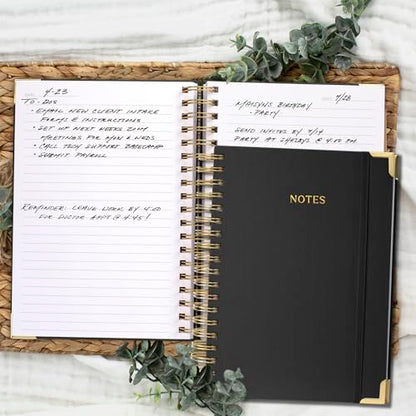 4-23
TO-DOS
• EMAIL NEW CLIENT INTAKE
FORMS & INSTRUCTIONS
• SET UP NEXT WEEKS ZOOM
MEETINGS FOR MON & WEDS
• CALL TECH SUPPORT
• SUBMIT PAYROLL
REMINDER: LEAVE WORK BY 4:00
FOR DOCTOR APPT @ 4:45!
MAISYN'S BIRTHDAY
• PARTY
SEND INVITES BY 7/14
PARTY AT SHELBY'S @ 4:00 PM
NOTES